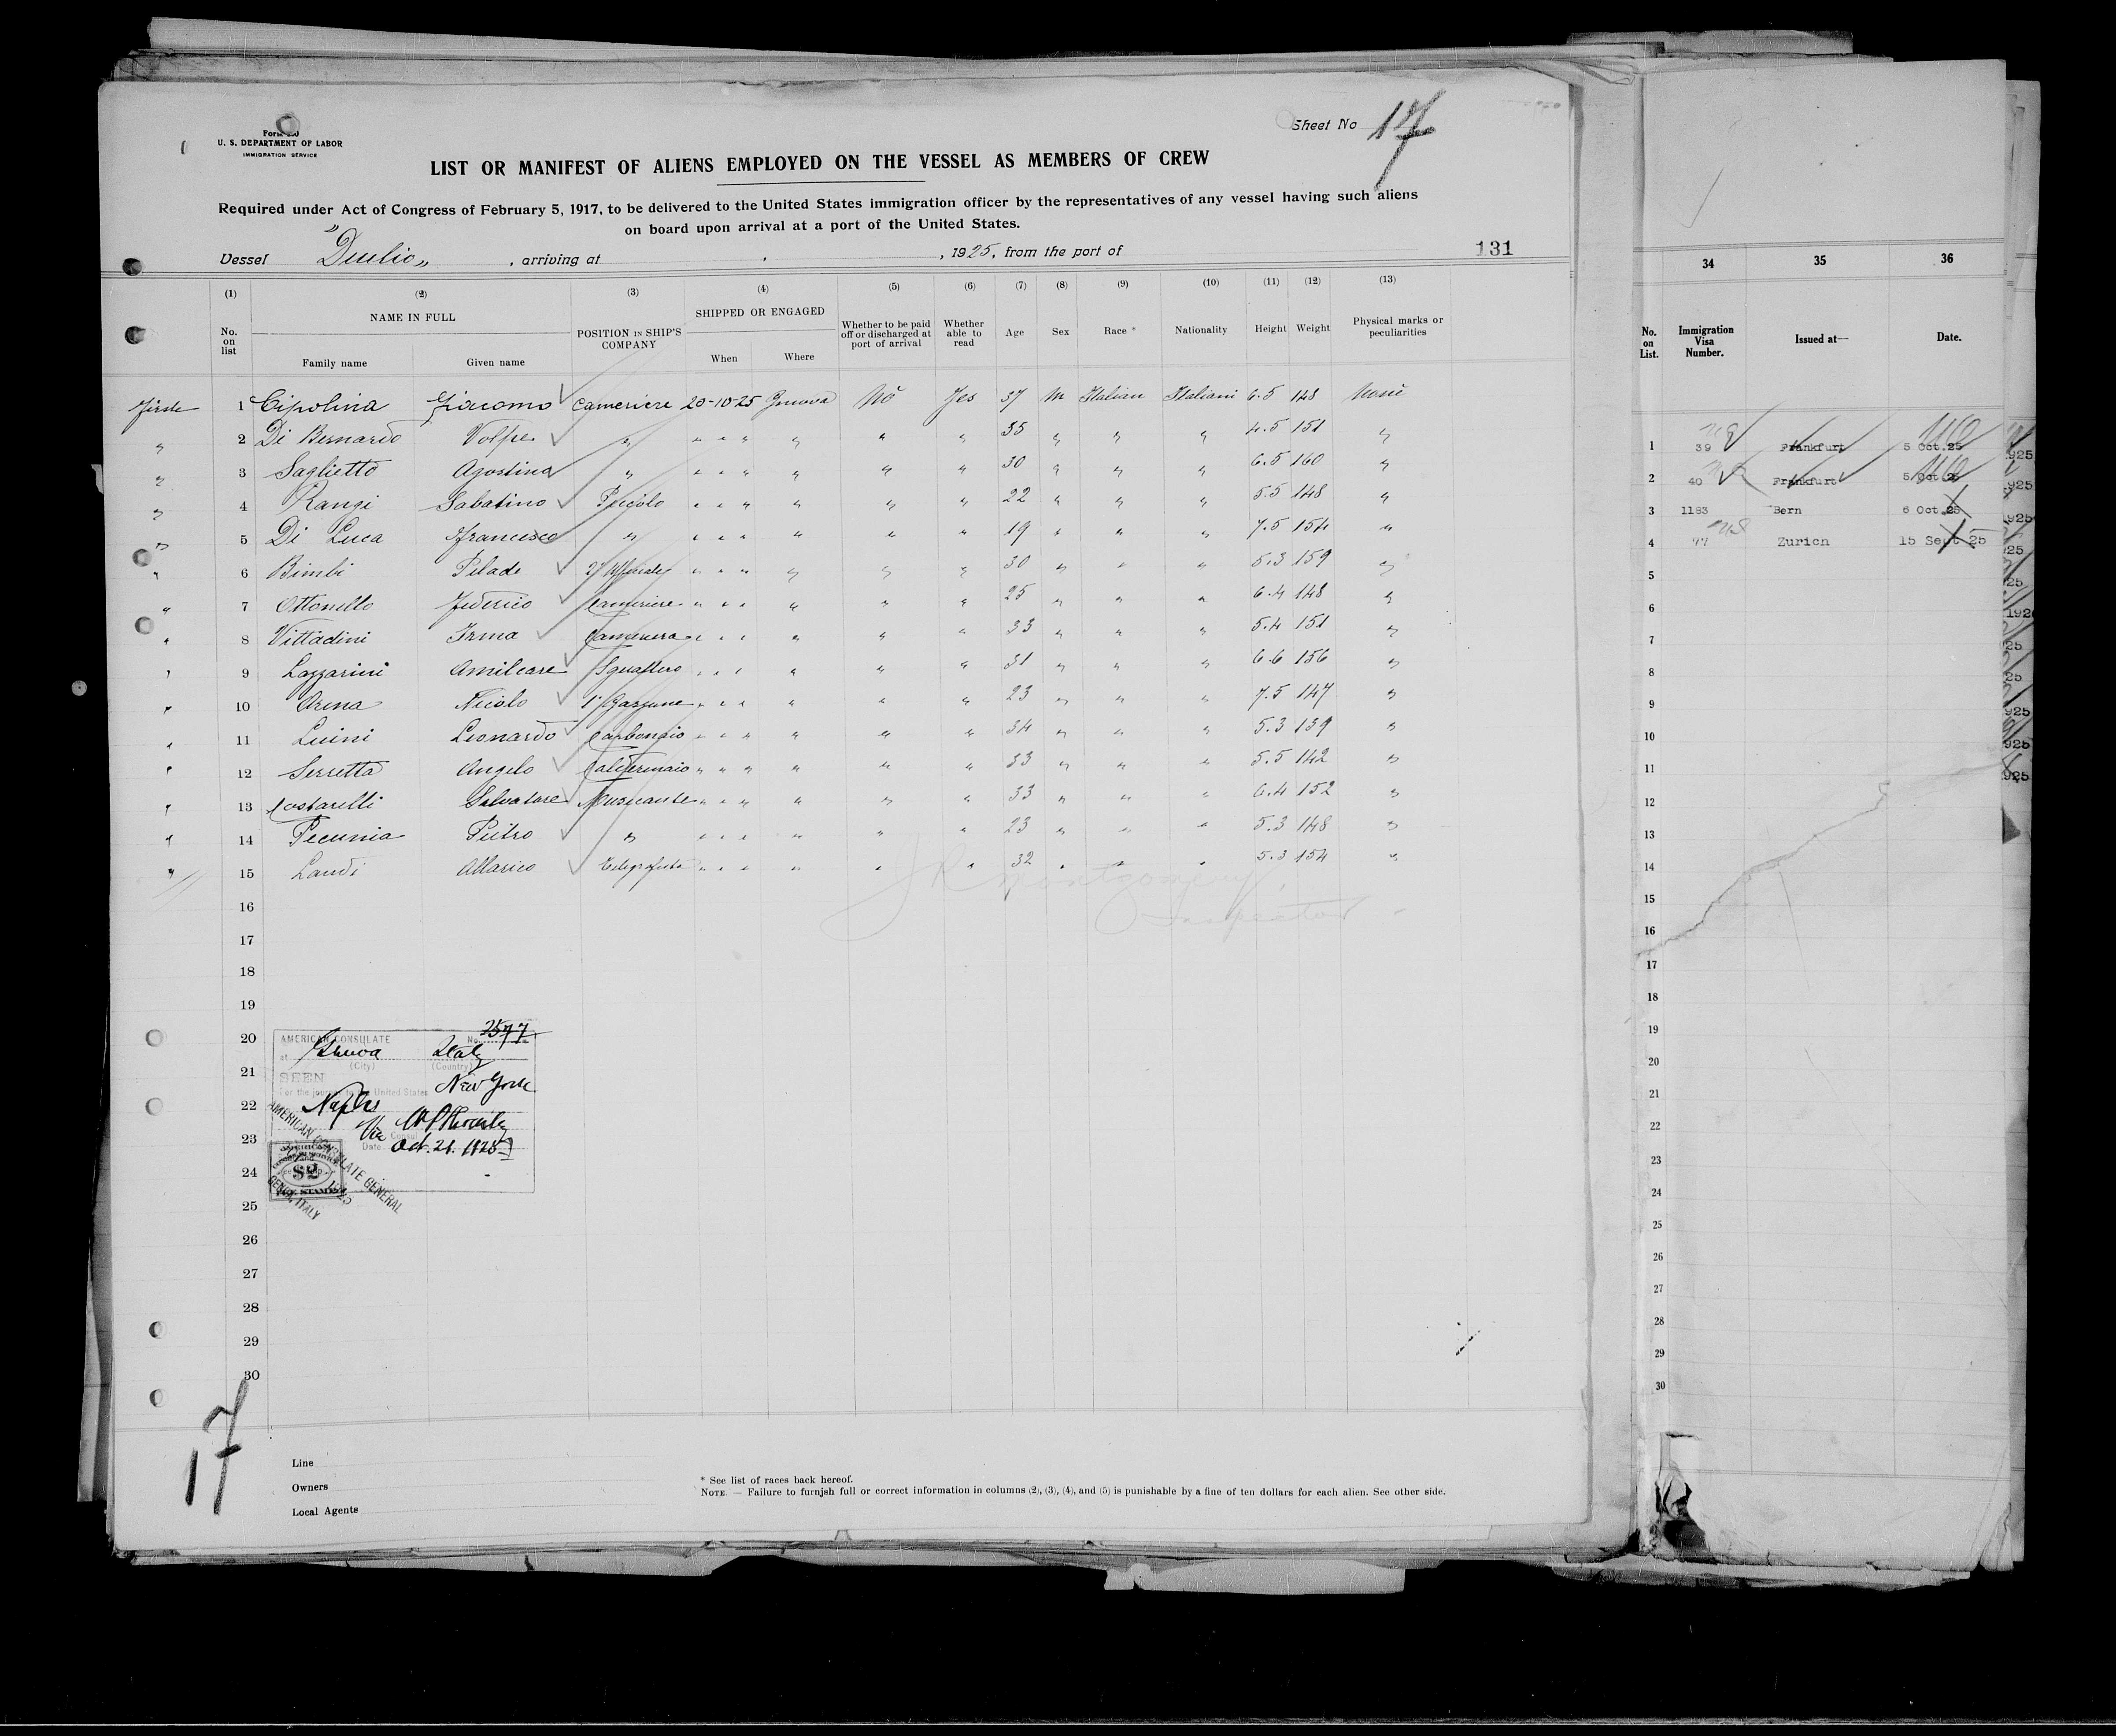 Form
U. S. DEPARTMENT OF LABOR
IMMIGRATION SERVICE
Sheet No 17
LIST OR MANIFEST OF ALIENS EMPLOYED ON THE VESSEL AS MEMBERS OF CREW
Required under Act of Congress of February 5, 1917, to be delivered to the United States immigration officer by the representatives of any vessel having such aliens
on board upon arrival at a port of the United States.
Vessel "Duilio" , arriving at , 1925, from the port of 131
(1) (2) (3) (4) (5) (6) (7) (8) (9) (10) (11) (12) (13)
No. on list NAME IN FULL Family name Given name POSITION IN SHIP'S COMPANY SHIPPED OR ENGAGED When Where Whether to be paid off or discharged at port of arrival Whether able to read Age Sex Race * Nationality Height Weight Physical marks or peculiarities
1 Cipolina Giacomo Cameriere 20-10-25 Genova No Yes 37 M Italian Italiani 6.5 148 None
2 Di Bernardo Volfre " " " " " " " 35 " " " 4.5 151 "
3 Saglietto Agostino " " " " " " " 30 " " " 6.5 160 "
4 Rangi Sabatino Piccolo " " " " " " 22 " " " 5.5 148 "
5 Di Luca Francesco " " " " " " " 19 " " " 7.5 154 "
6 Bimbi Pilade " " " " " " 30 " " " 5.3 159 "
7 Ottonello Federico Cameriere " " " " " " 25 " " " 6.4 148 "
8 Vittadini Irma Cameriera " " " " " " 33 " " " 5.4 151 "
9 Lazzarini Amilcare Sguattero " " " " " " 31 " " " 6.6 156 "
10 Arena Nicolo 1° Garzone " " " " " " 23 " " " 7.5 147 "
11 Luini Leonardo Carbonaio " " " " " " 34 " " " 5.3 139 "
12 Serretta Angelo " " " " " " 33 " " " 5.5 142 "
13 Costarelli Salvatore Musicante " " " " " " 33 " " " 6.4 152 "
14 Pecunia Pietro " " " " " " " 23 " " " 5.3 148 "
15 Landi Allarico Telegrafista " " " " " " 32 " " " 5.3 154 "
J R Montgomery
Inspector
16
17
18
19
20
21
22
23
24
25
26
27
28
29
30
AMERICAN CONSULATE No. 2577
at Genoa Italy
(City) (Country)
SEEN
For the journey to the United States
New York
Via Naples
Date Oct. 21. 1925
AMERICAN CONSULATE GENERAL
GENOA, ITALY
$2
17
Line
Owners
Local Agents
* See list of races back hereof.
NOTE. — Failure to furnish full or correct information in columns (2), (3), (4), and (5) is punishable by a fine of ten dollars for each alien. See other side.
34 35 36
No. on List. Immigration Visa Number. Issued at— Date.
1 39 Frankfurt 5 Oct.25
2 40 Frankfurt 5 Oct 2
3 1183 Bern 6 Oct.25
4 97 Zurich 15 Sept 25
5
6
7
8
9
10
11
12
13
14
15
16
17
18
19
20
21
22
23
24
25
26
27
28
29
30